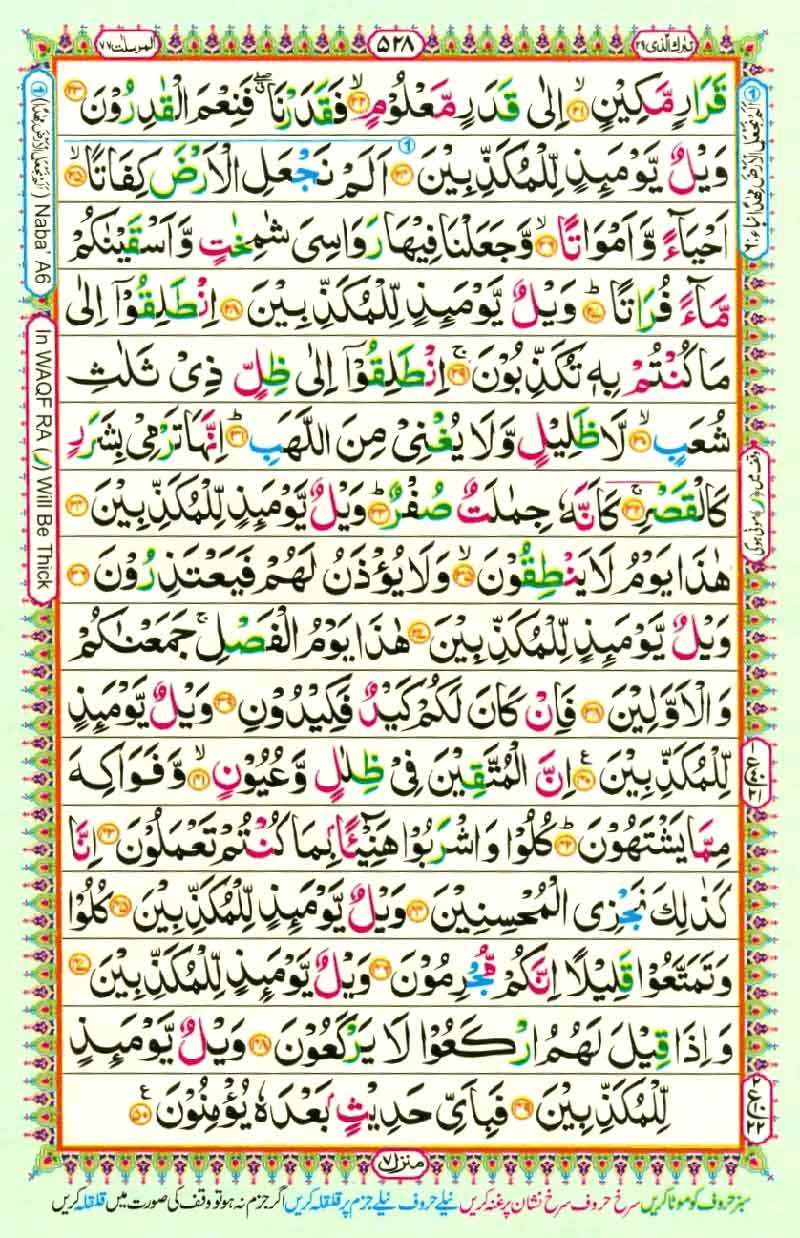 تبٰرك الذی ۲۹
۵۲۸
المرسلٰت ۷۷
قَرَارٍ مَّكِیْنٍۙ۝۲۱ اِلٰى قَدَرٍ مَّعْلُوْمٍۙ۝۲۲ فَقَدَرْنَا ۖۗ فَنِعْمَ الْقٰدِرُوْنَ۝۲۳
وَیْلٌ یَّوْمَىِٕذٍ لِّلْمُكَذِّبِیْنَ۝۲۴ اَلَمْ نَجْعَلِ الْاَرْضَ كِفَاتًاۙ۝۲۵
اَحْیَآءً وَّ اَمْوَاتًاۙ۝۲۶ وَّ جَعَلْنَا فِیْهَا رَوَاسِیَ شٰمِخٰتٍ وَّ اَسْقَیْنٰكُمْ
مَّآءً فُرَاتًاؕ۝۲۷ وَیْلٌ یَّوْمَىِٕذٍ لِّلْمُكَذِّبِیْنَ۝۲۸ اِنْطَلِقُوْۤا اِلٰى
مَا كُنْتُمْ بِهٖ تُكَذِّبُوْنَۚ۝۲۹ اِنْطَلِقُوْۤا اِلٰى ظِلٍّ ذِیْ ثَلٰثِ
شُعَبٍۙ۝۳۰ لَّا ظَلِیْلٍ وَّ لَا یُغْنِیْ مِنَ اللَّهَبِؕ۝۳۱ اِنَّهَا تَرْمِیْ بِشَرَرٍ
كَالْقَصْرِۚ۝۳۲ كَاَنَّهٗ جِمٰلَتٌ صُفْرٌؕ۝۳۳ وَیْلٌ یَّوْمَىِٕذٍ لِّلْمُكَذِّبِیْنَ۝۳۴
هٰذَا یَوْمُ لَا یَنْطِقُوْنَۙ۝۳۵ وَ لَا یُؤْذَنُ لَهُمْ فَیَعْتَذِرُوْنَ۝۳۶
وَیْلٌ یَّوْمَىِٕذٍ لِّلْمُكَذِّبِیْنَ۝۳۷ هٰذَا یَوْمُ الْفَصْلِۚ جَمَعْنٰكُمْ
وَ الْاَوَّلِیْنَ۝۳۸ فَاِنْ كَانَ لَكُمْ كَیْدٌ فَكِیْدُوْنِ۝۳۹ وَیْلٌ یَّوْمَىِٕذٍ
لِّلْمُكَذِّبِیْنَ۠۝۴۰ اِنَّ الْمُتَّقِیْنَ فِیْ ظِلٰلٍ وَّ عُیُوْنٍۙ۝۴۱ وَّ فَوَاكِهَ
مِمَّا یَشْتَهُوْنَؕ۝۴۲ كُلُوْا وَ اشْرَبُوْا هَنِیْٓـًٔۢا بِمَا كُنْتُمْ تَعْمَلُوْنَ۝۴۳ اِنَّا
كَذٰلِكَ نَجْزِی الْمُحْسِنِیْنَ۝۴۴ وَیْلٌ یَّوْمَىِٕذٍ لِّلْمُكَذِّبِیْنَ۝۴۵ كُلُوْا
وَ تَمَتَّعُوْا قَلِیْلًا اِنَّكُمْ مُّجْرِمُوْنَ۝۴۶ وَیْلٌ یَّوْمَىِٕذٍ لِّلْمُكَذِّبِیْنَ۝۴۷
وَ اِذَا قِیْلَ لَهُمُ ارْكَعُوْا لَا یَرْكَعُوْنَ۝۴۸ وَیْلٌ یَّوْمَىِٕذٍ
لِّلْمُكَذِّبِیْنَ۝۴۹ فَبِاَیِّ حَدِیْثٍۭ بَعْدَهٗ یُؤْمِنُوْنَ۠۝۵۰
Naba' A6
In WAQF RA (ر) Will Be Thick
منزل ۷
سبز حروف کو موٹا کریں سرخ حروف سرخ نشان پر غنہ کریں نیلے حروف نیلے جزم پر قلقلہ کریں اگر جزم نہ ہو تو وقف کی صورت میں قلقلہ کریں